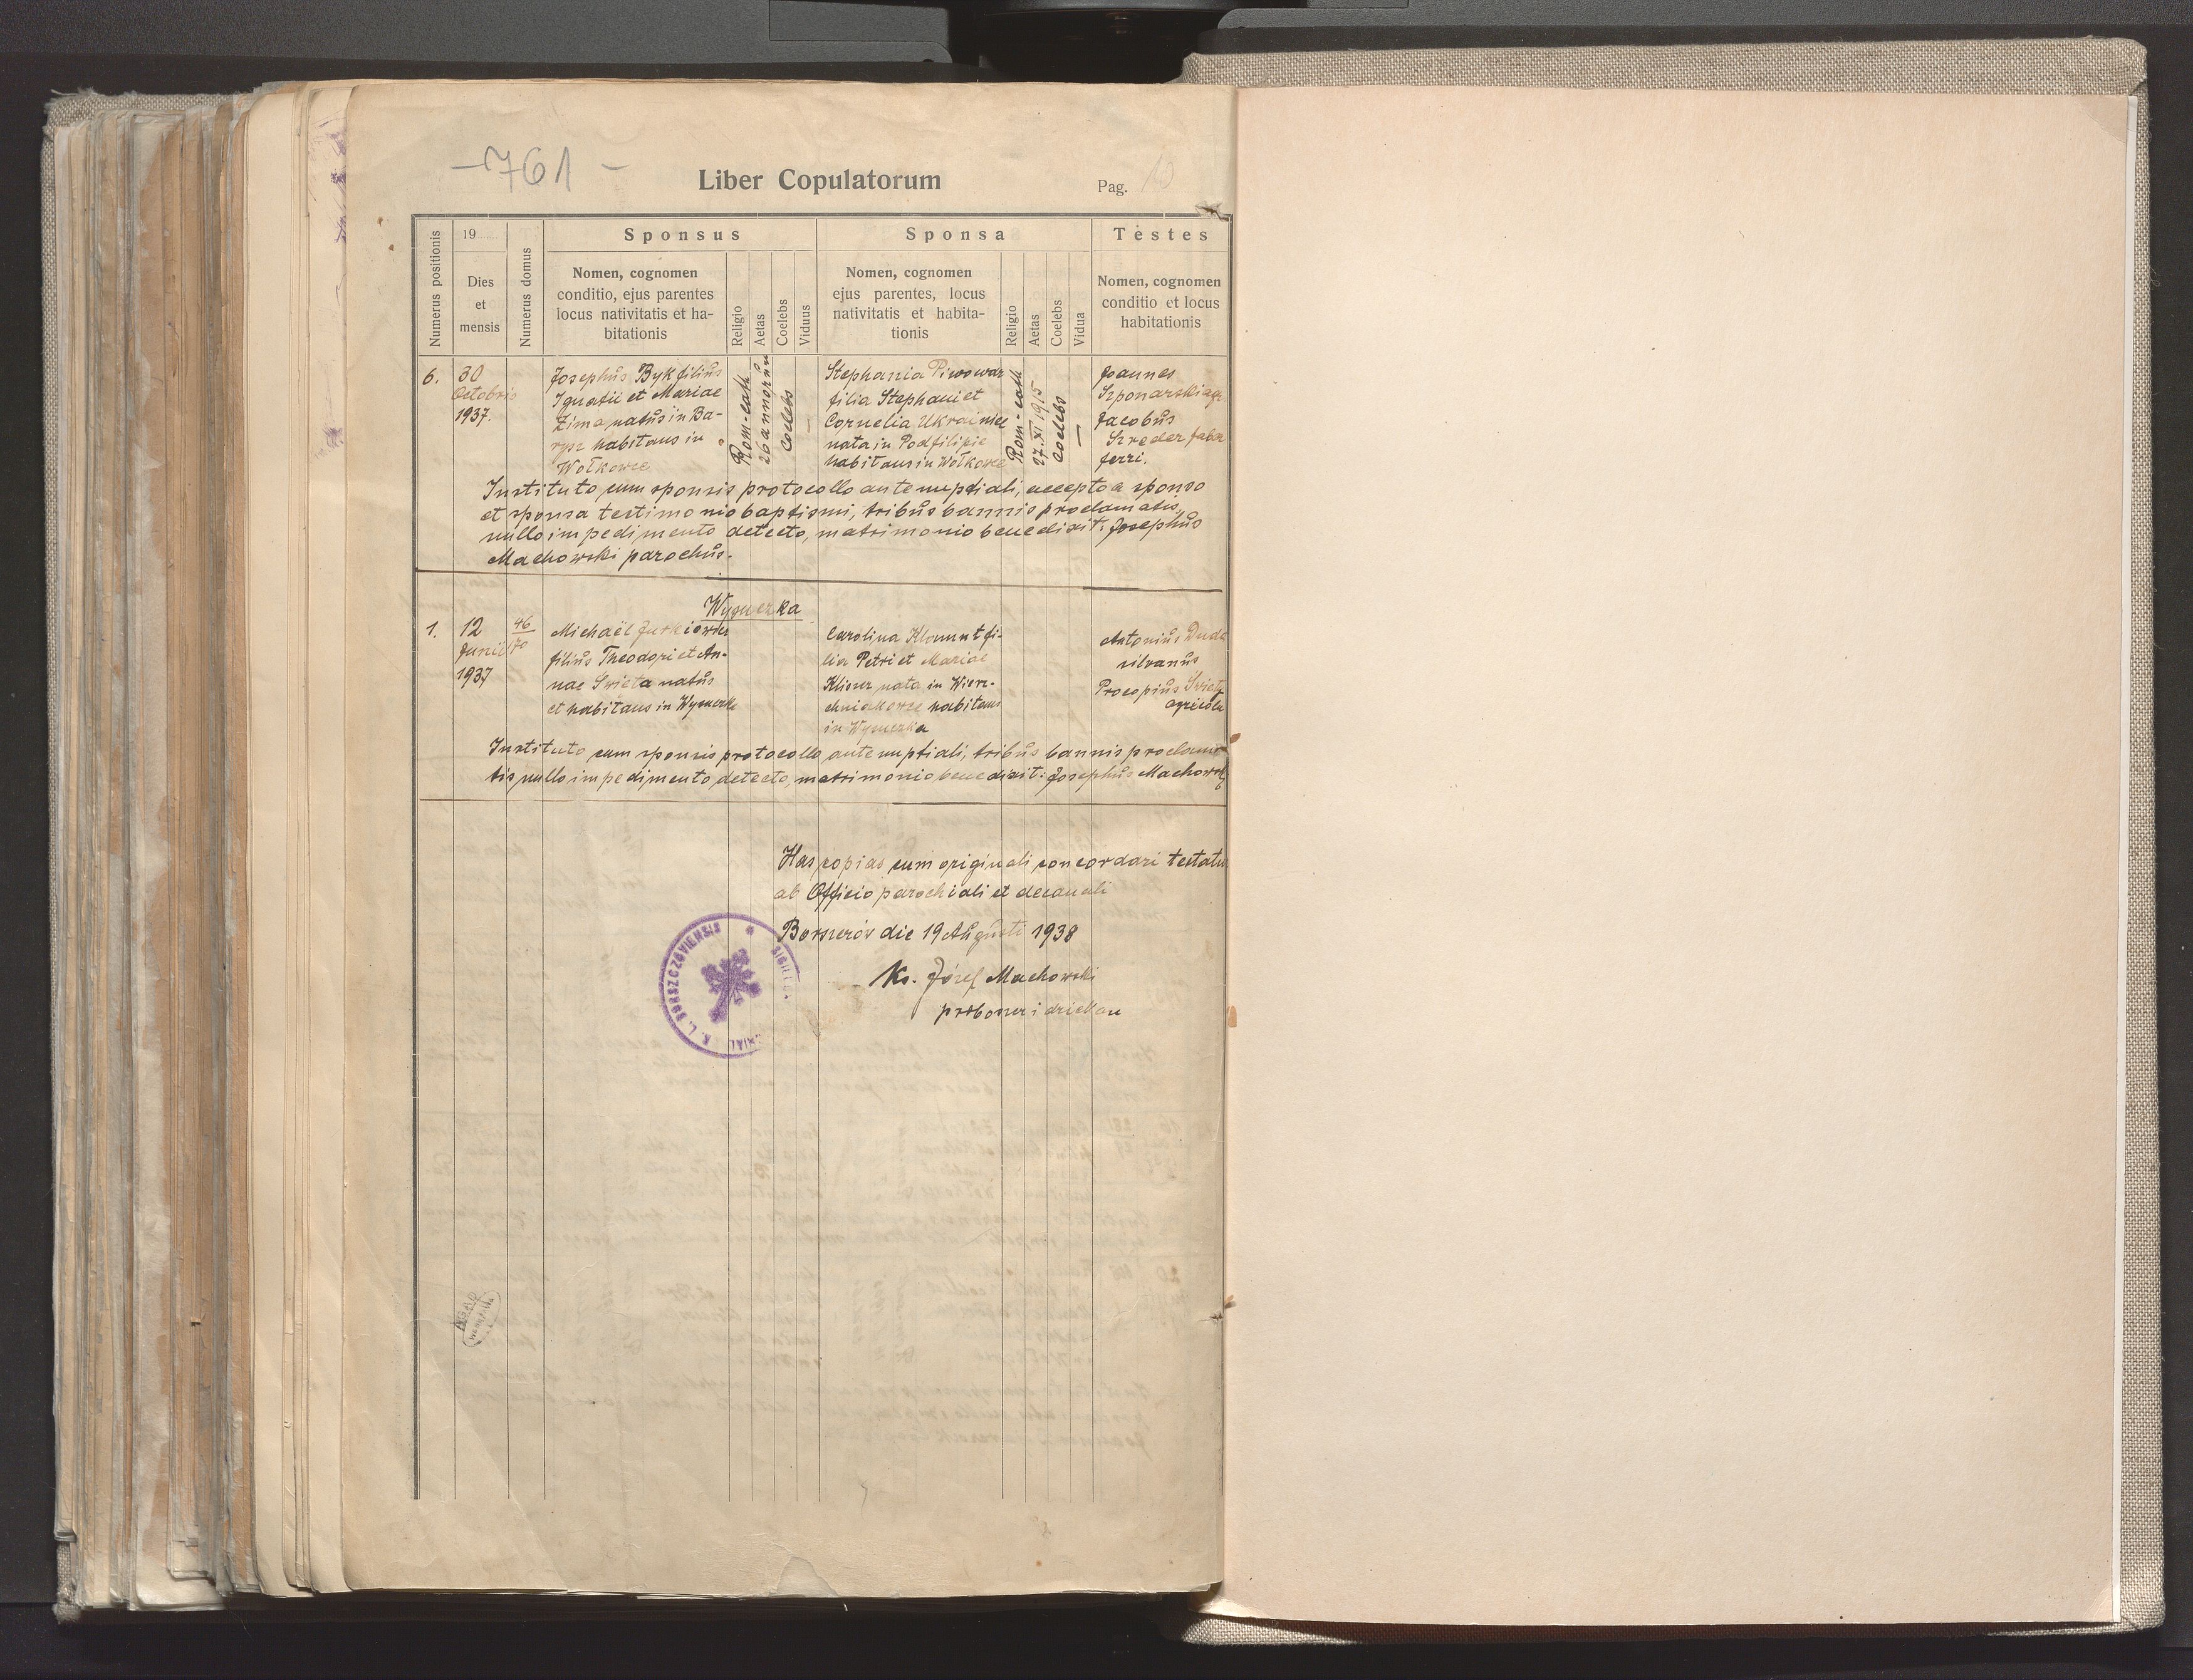 -761-
Liber Copulatorum
Pag. 10
Numerus positionis
19
Dies
et
mensis
Numerus domus
Sponsus
Nomen, cognomen
conditio, ejus parentes
locus nativitatis et ha-
bitationis
Religio
Aetas
Coelebs
Viduus
Sponsa
Nomen, cognomen
ejus parentes, locus
nativitatis et habita-
tionis
Religio
Aetas
Coelebs
Vidua
Testes
Nomen, cognomen
conditio et locus
habitationis
6.
30
Octobris
1937.
Josephus Byk filius
Ignatii et Mariae
Zima natus in Ba-
rysz habitans in
Wołkowce
Rom-cath
26 annorum
Coelebs
–
Stephania Piwowar
filia Stephani et
Cornelia Ukrainiec
nata in Podfilipie
habitans in Wołkowce
Rom-cath
27.XI 1915
coelebs
–
Joannes
Szponarski agr.
Jacobus
Szreder faber
ferri.
Instituto cum sponsis protocollo antenuptiali, accepto a sponso
et sponsa testimonio baptismi, tribus bannis proclamatis,
nullo impedimento detecto, matrimonio benedixit: Josephus
Machowski parochus.
Wygnerka
1.
12
Junii
1937
46
/70
Michaël Jurkiewicz
filius Theodori et An-
nae Swieta natus
et habitans in Wygnerka
Carolina Klamut fi-
lia Petri et Mariae
nata in Wierz-
chniakowce habitans
in Wygnerka
Antonius Duda
silvanus
Procopius Swięty
agricola
Instituto cum sponsis protocollo antenuptiali, tribus bannis proclama-
tis nullo impedimento detecto, matrimonio benedixit: Josephus Machowski
Has copias cum originali concordari testatur
ab Officio parochiali et decanali
Borszczów die 19 Augusti 1938
Ks. Józef Machowski
proboszcz i dziekan
SIGILLUM
R. L. BORSZCZOVIENSIS